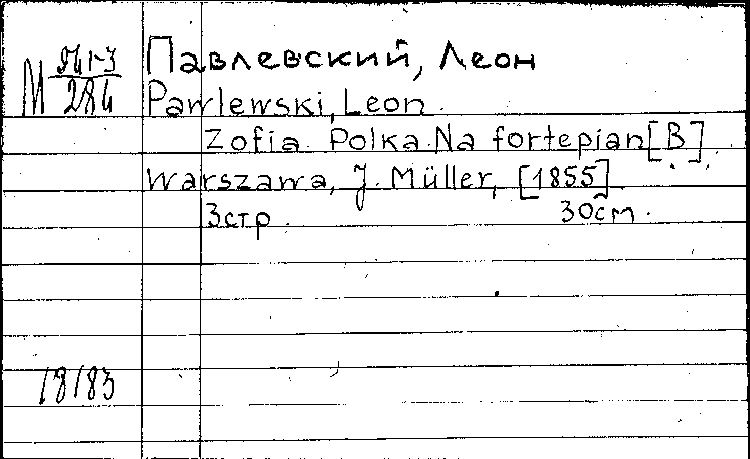 М Яиг3
284
Павлевский, Леон
Pawlewski, Leon.
Zofia. Polka. Na fortepian [B].
Warszawa, J. Müller, [1855]
3стр. 30см.
18183